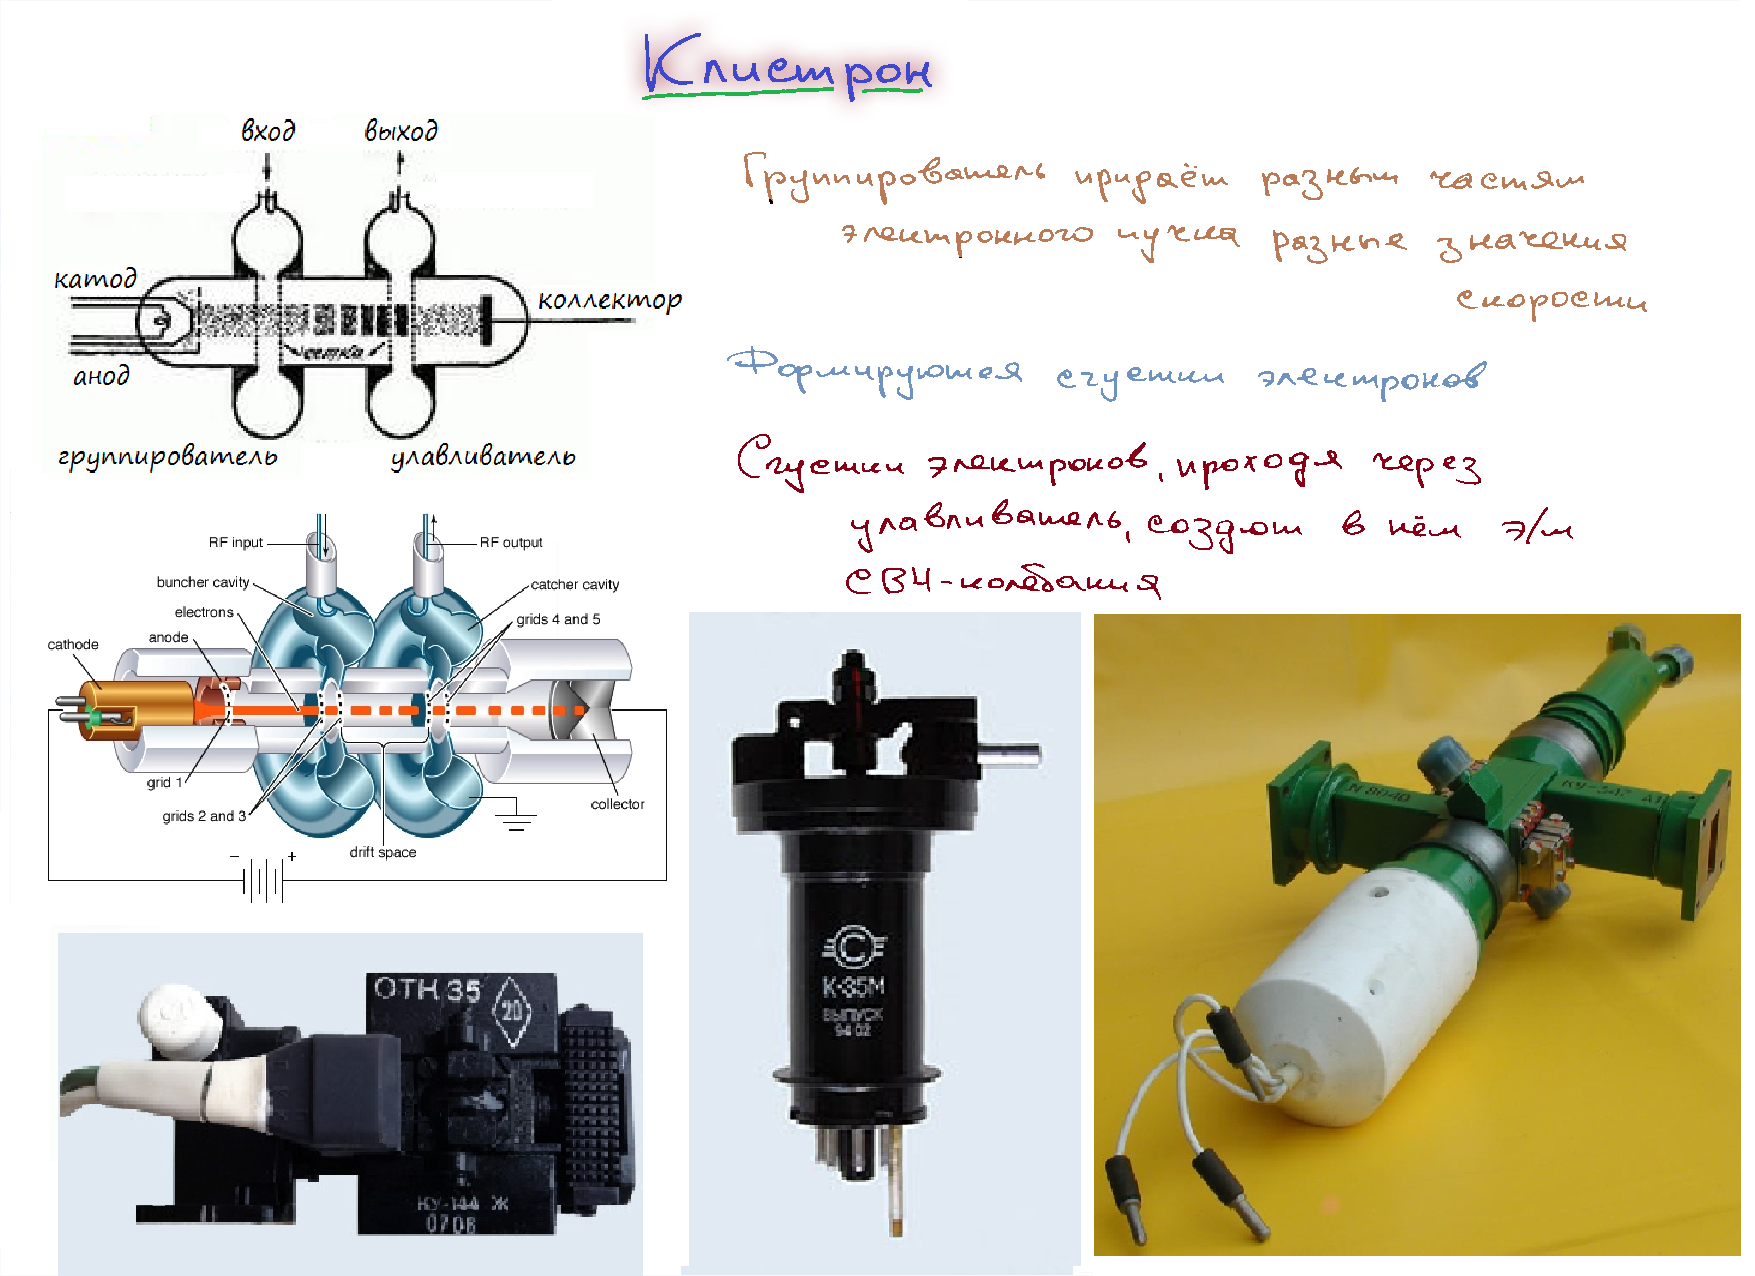 Клистрон
вход
выход
катод
коллектор
сетка
анод
группирователь
улавливатель
Группирователь придаёт разным частям
электронного пучка разные значения
скорости
Формируются сгустки электронов
Сгустки электронов, проходя через
улавливатель, создют в нём э/м
СВЧ-колебания
RF input
RF output
buncher cavity
catcher cavity
electrons
grids 4 and 5
anode
cathode
grid 1
grids 2 and 3
collector
drift space
− +
ОТК 35
20
КУ-144 Ж
0708
С
К-35М
ВЫПУСК
94 02